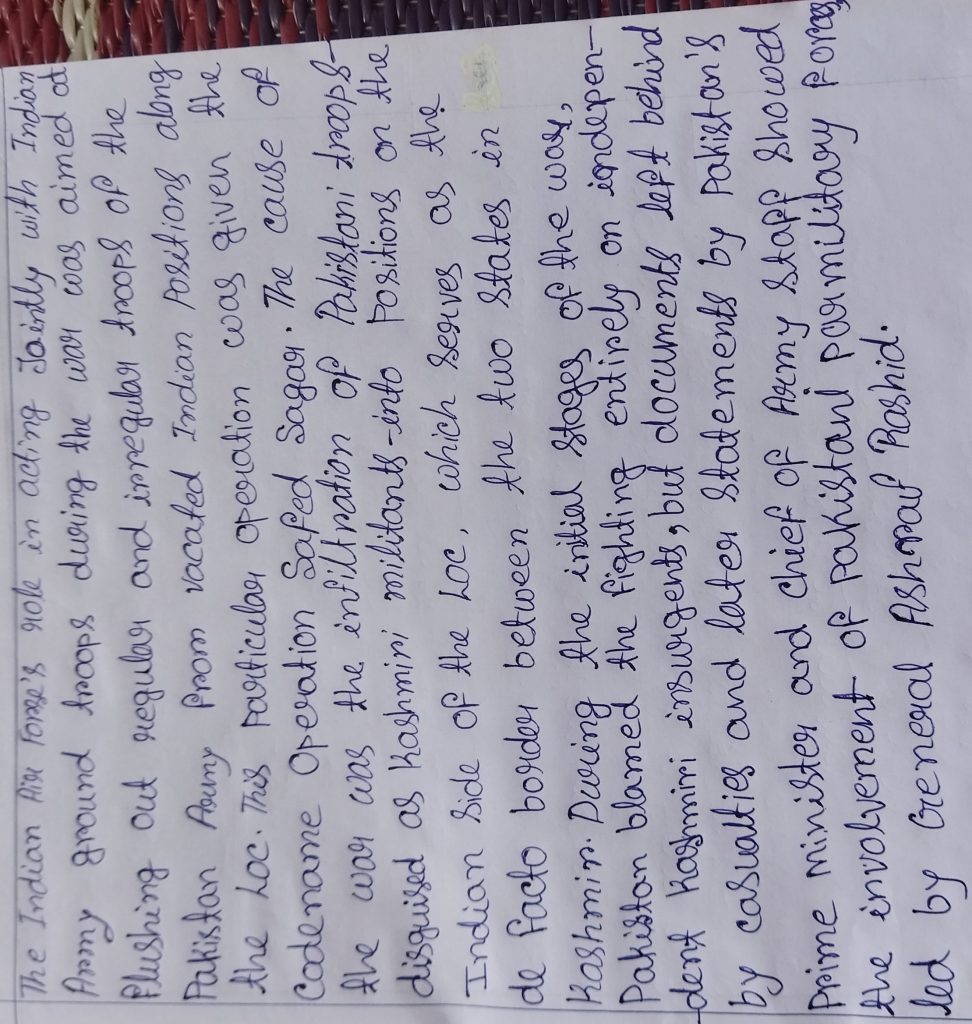 The Indian Air Force's role in acting Jointly with Indian
Army ground troops during the war was aimed at
flushing out regular and irregular troops of the
Pakistan Army from vacated Indian Positions along
the LoC. This Particular operation was given the
Codename Operation Safed Sagar. The cause of
the war was the infiltration of Pakistani troops-
disguised as Kashmiri militants-into Positions on the
Indian Side of the LoC, which Serves as the
de facto border between the two States in
Kashmir. During the initial Stages of the war,
Pakistan blamed the fighting entirely on indepen-
-dent Kashmiri insurgents, but documents left behind
by casualties and later Statements by Pakistan's
Prime minister and chief of Army Staff Showed
the involvement of pakistani parmilitary Forces
led by General Ashraf Rashid.